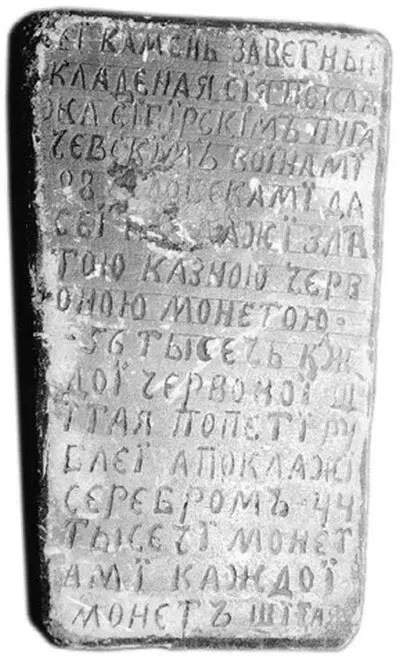 СЕЇ КАМЕНЬ ЗАВЕТНЫЙ
КЛАДЕНАЯ СЇЯ ПОКЛА
ЖА СЇБЇРСКЇМЪ ПУГА
ЧЕВСКИМЪ ВОЇНАМЇ
98 ЧЕЛОВЕКАМЇ ДА
СЕЇ ЗЛА
ТОЮ КАЗНОЮ ЧЕРВ
ОНОЮ МОНЕТОЮ
56 ТЫСЕЧЬ КАЖ
ДОЇ ЧЕРВОНОЇ Щ
ЇТАЯ ПОПЕТЇ РУ
БЛЕЇ АПОКЛАЖЇ
СЕРЕБРОМЪ 44
ТЫСЕЧЇ МОНЕТ
АМЇ КАЖДОЇ
МОНЕТЪ ЩЇТАЯ